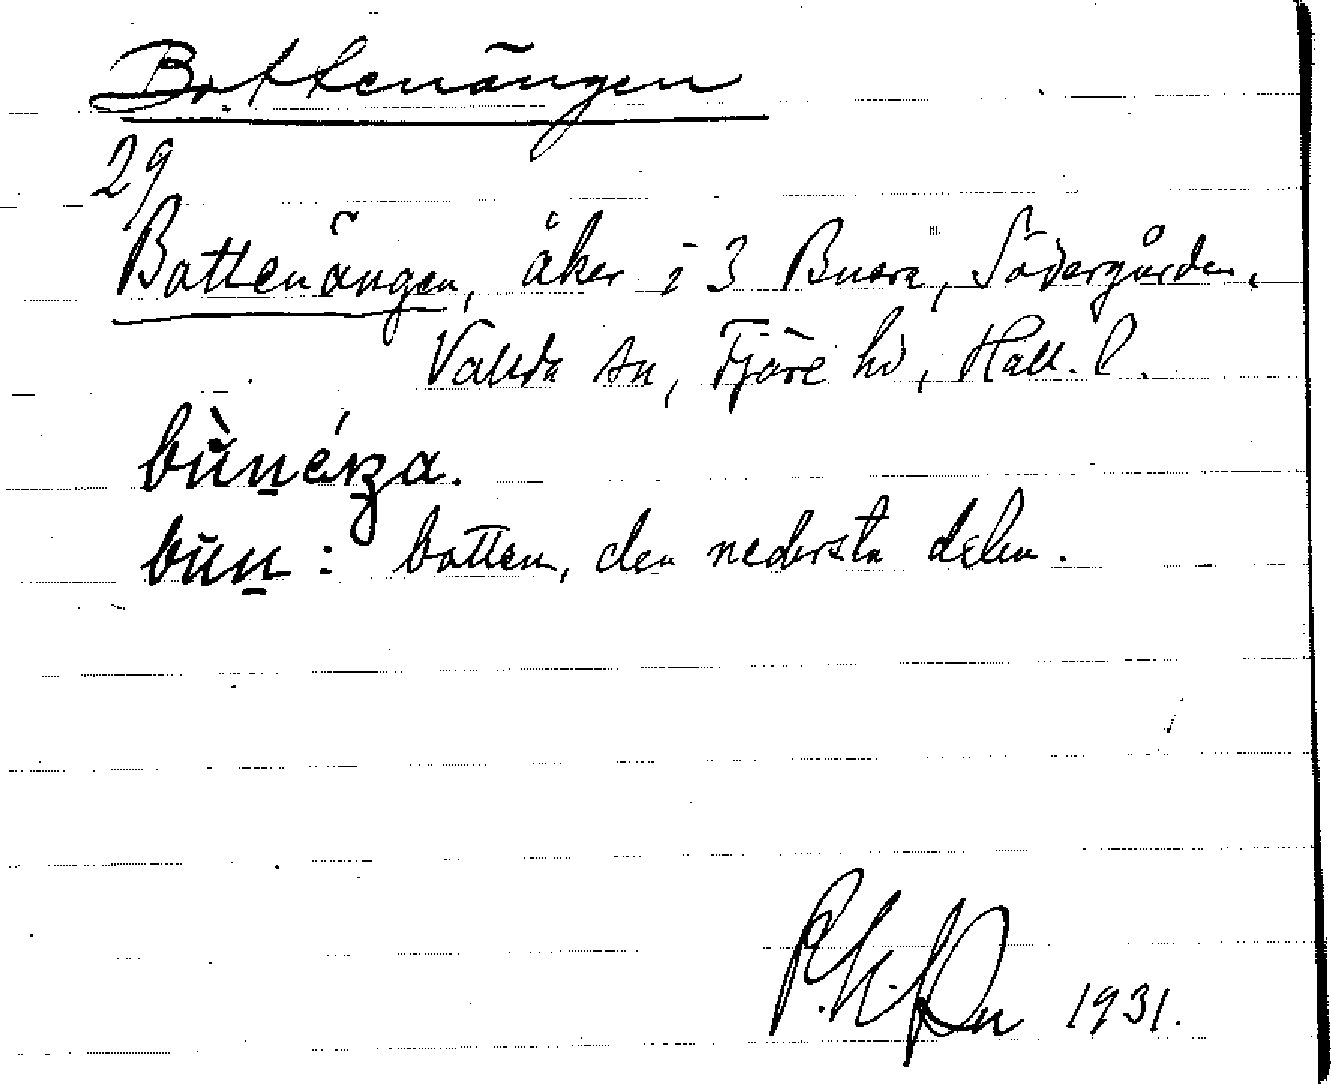 Bottenängen
29
Bottenängen, åker i 3 Buera, Södergården,
Vallda sn, Fjäre hd, Hall. l.
bùnéŋa.
bun : botten, den nedersta delen.
1931.